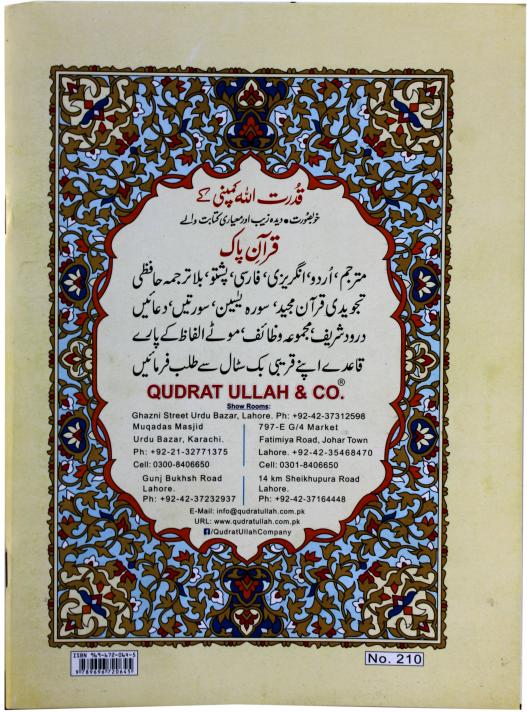 قدرت اللہ کمپنی کے
خوبصورت • دیدہ زیب اور معیاری کتابت والے
قرآن پاک
مترجم، اُردو، انگریزی، فارسی، پشتو، بلا ترجمہ حافظی
تجویدی قرآن مجید، سورہ یٰسین، سورتیں، دعائیں
درود شریف، مجموعہ وظائف، موٹے الفاظ کے پارے
قاعدے اپنے قریبی بک سٹال سے طلب فرمائیں
QUDRAT ULLAH & CO.®
Show Rooms:
Ghazni Street Urdu Bazar, Lahore. Ph: +92-42-37312598
Muqadas Masjid
Urdu Bazar, Karachi.
Ph: +92-21-32771375
Cell: 0300-8406650
797-E G/4 Market
Fatimiya Road, Johar Town
Lahore. +92-42-35468470
Cell: 0301-8406650
Gunj Bukhsh Road
Lahore.
Ph: +92-42-37232937
14 km Sheikhupura Road
Lahore.
Ph: +92-42-37164448
E-Mail: info@qudratullah.com.pk
URL: www.qudratullah.com.pk
f/QudratUllahCompany
ISBN 969-672-064-5
9789696720645
No. 210